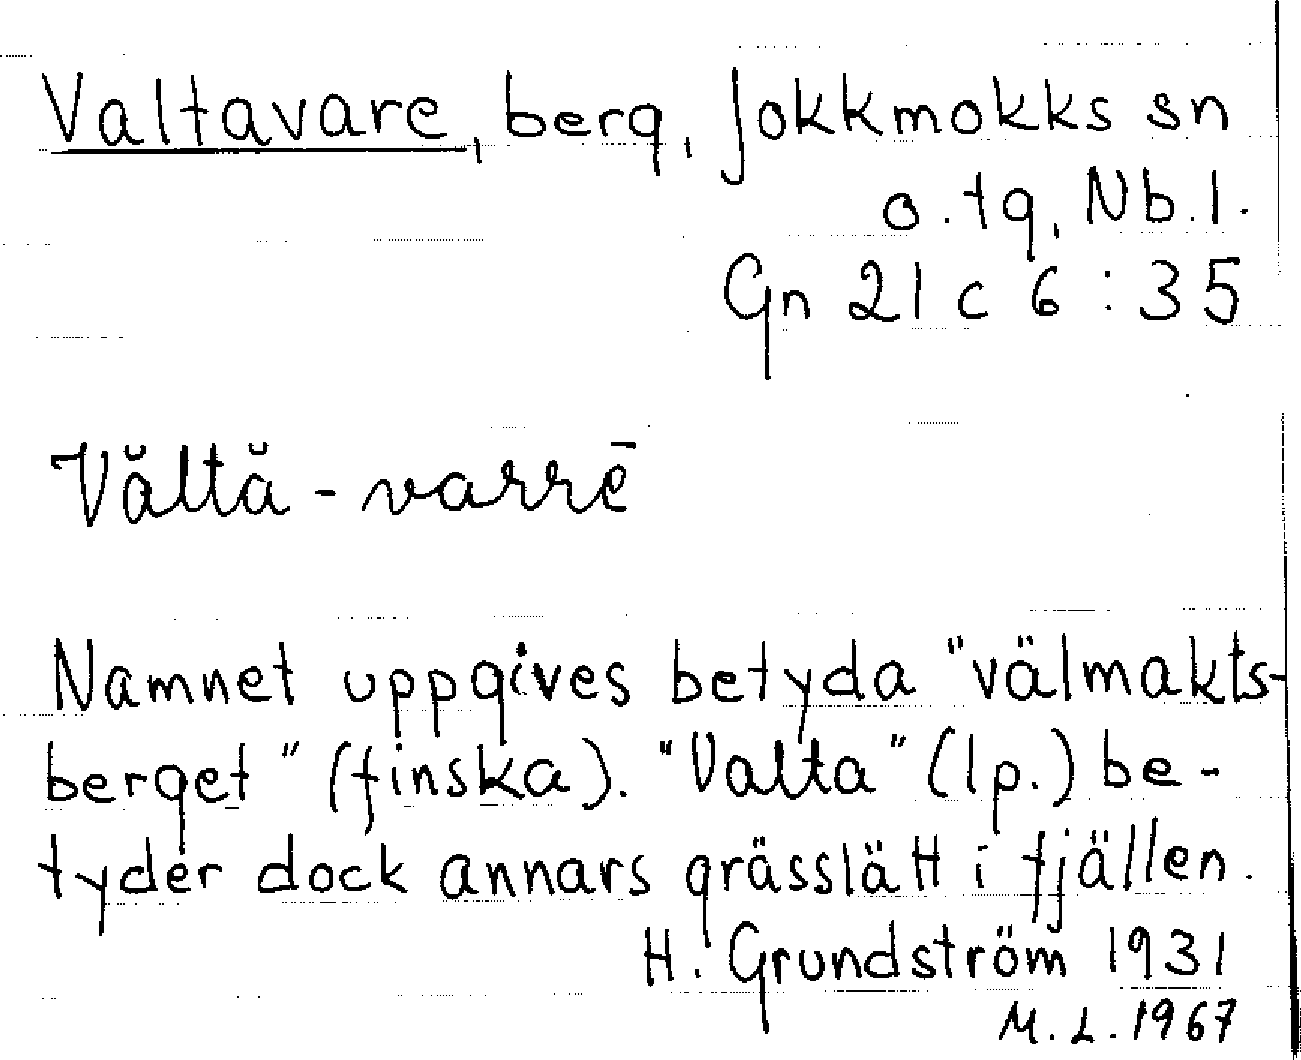 Valtavare, berg, Jokkmokks sn
o. tg, Nb.l.
Gn 21 c 6 : 35
Vål̆tā̆ - varrē
Namnet uppgives betyda "välmakts-
berget" (finska). "Valta" (lp.) be-
tyder dock annars grässlätt i fjällen.
H. Grundström 1931
M. L. 1967